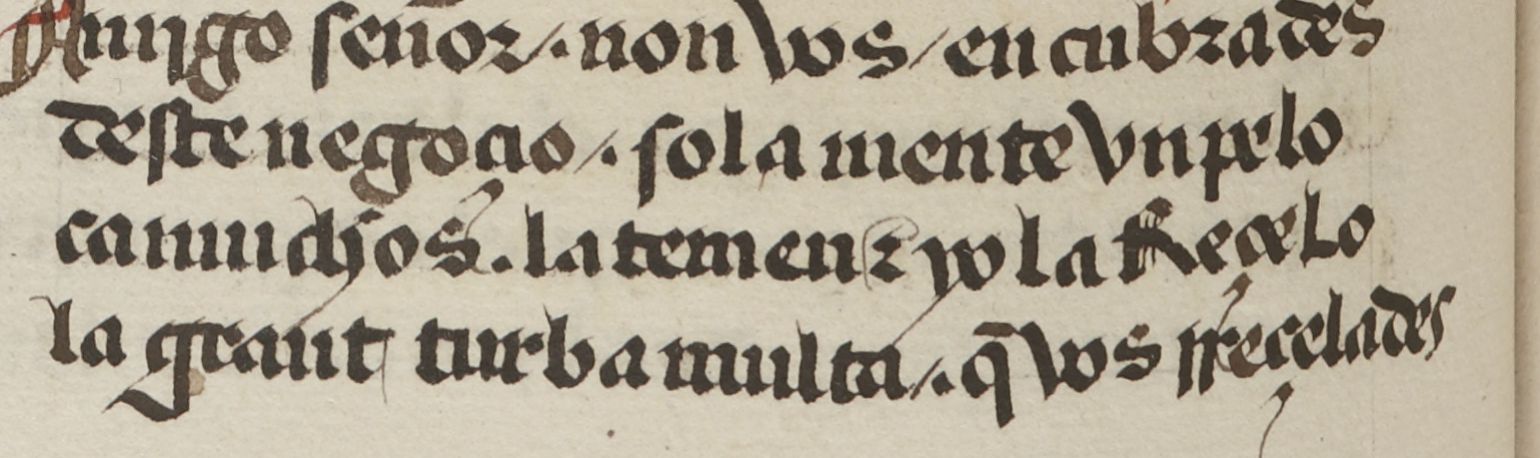 Amigo señor /. non vos / encubrades
deste negocio /. sola mente vn pelo
ca muchos. la temen ⁊ yo la Recelo
la grant turba multa /. q̄ vos rrecelades